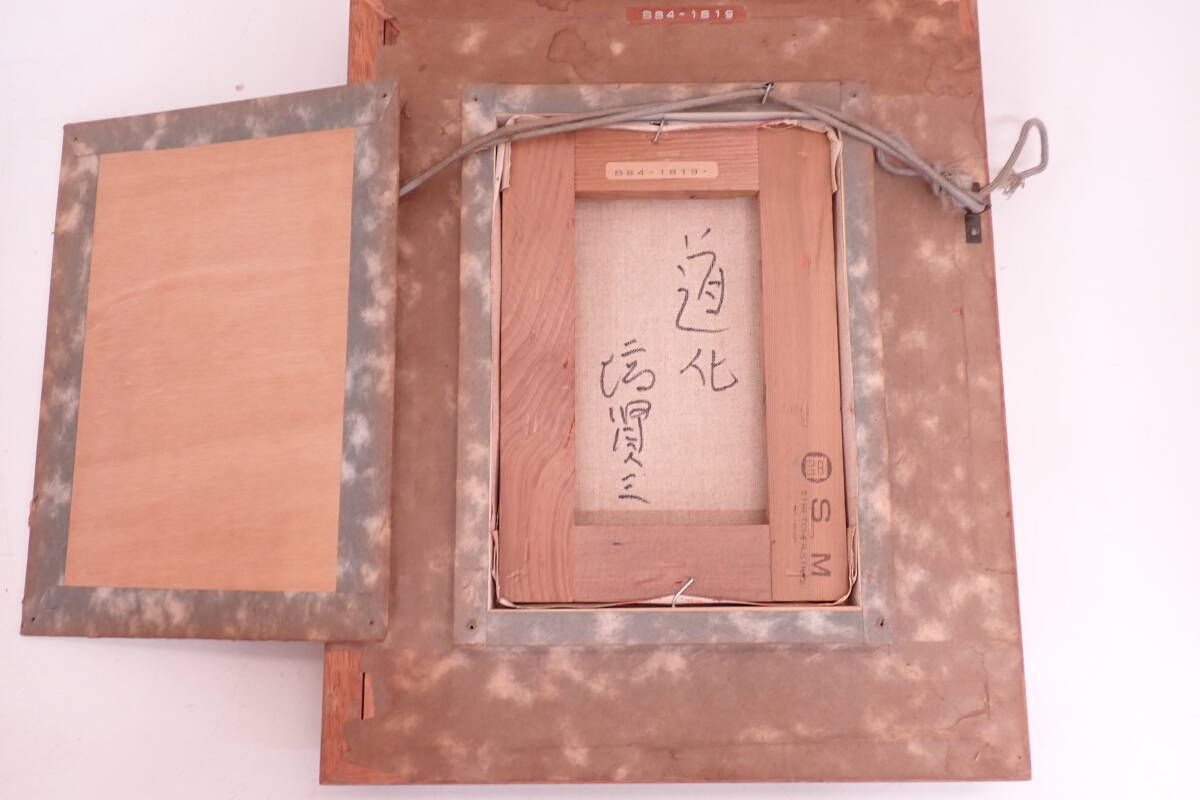 884-1819
884-1819-
道化
塙賢三
S M